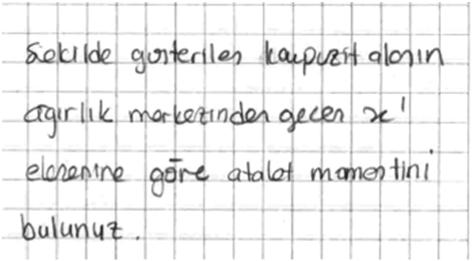 Şekilde gösterilen kompozit alanın
ağırlık merkezinden geçen x'
eksenine göre atalet momentini
bulunuz.